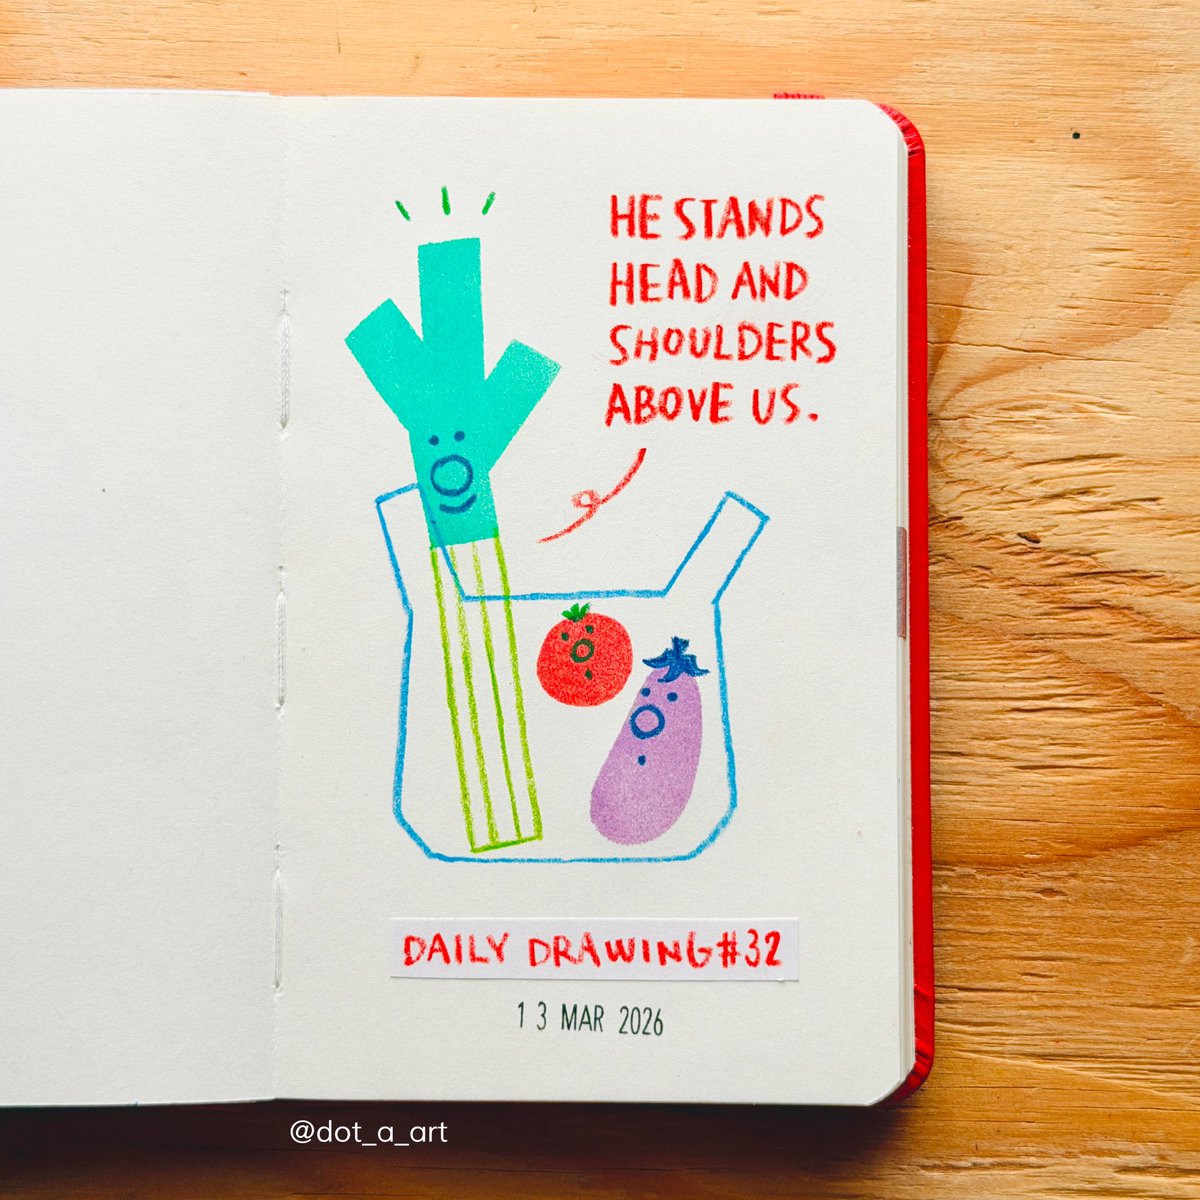 HE STANDS
HEAD AND
SHOULDERS
ABOVE US.
DAILY DRAWING #32
13 MAR 2026
@dot_a_art